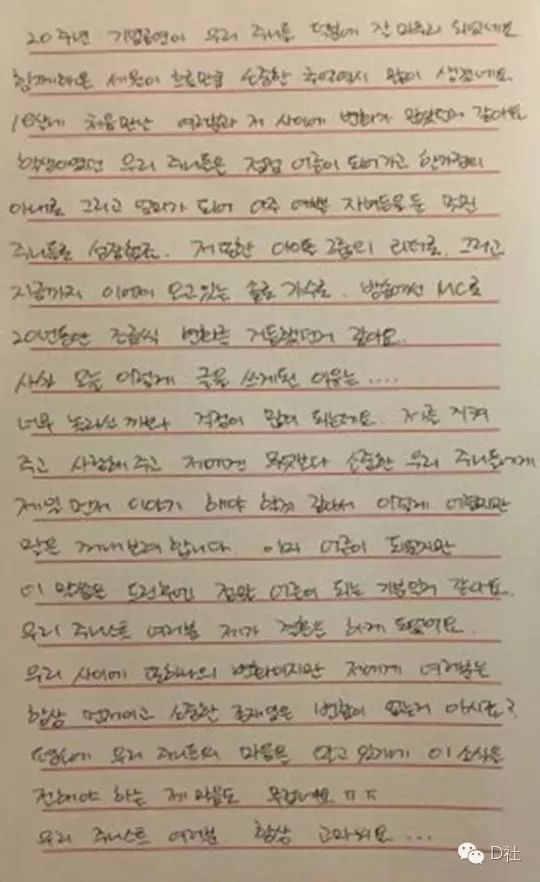 20주년 기념공연이 우리 주니들 덕분에 잘 마무리 되었네요
함께해온 세월이 흐른만큼 소중한 추억역시 많이 생겼네요.
18살에 처음만난 여러분과 저 사이에 변화가 많았던거 같아요
학생이였던 우리 주니들은 점점 어른이 되어가고 한가정의
아내로 그리고 엄마가 되어 아주 예쁜 자녀들을 둔 멋진
주니들로 성장했죠. 저 또한 아이돌 그룹의 리더로, 그리고
지금까지 이어져 오고있는 솔로 가수로, 방송에서 MC로
20년동안 조금씩 변화를 거듭했던거 같아요.
사실 오늘 이렇게 글을 쓰게된 이유는....
너무 놀라실까봐 걱정이 많이 되는데요. 저를 지켜
주고 사랑해주고 저에겐 무엇보다 소중한 우리 주니들에게
제일 먼저 이야기 해야 할것 같아서 이렇게 어렵지만
말을 꺼내보려 합니다. 이미 어른이 되었지만
이 말씀을 드린후엔 정말 어른이 되는 기분인거 같아요.
우리 주니스트 여러분 제가 결혼을 하게 되었어요.
우리 사이에 또하나의 변화이지만 저에게 여러분은
항상 먼저이고 소중한 존재임은 변함이 없는거 아시죠?
우리 주니들의 마음을 알고 있기에 이 소식을
전해야 하는 제 마음도 무겁네요 ㅠㅠ
우리 주니스트 여러분 항상 고마워요...
D社